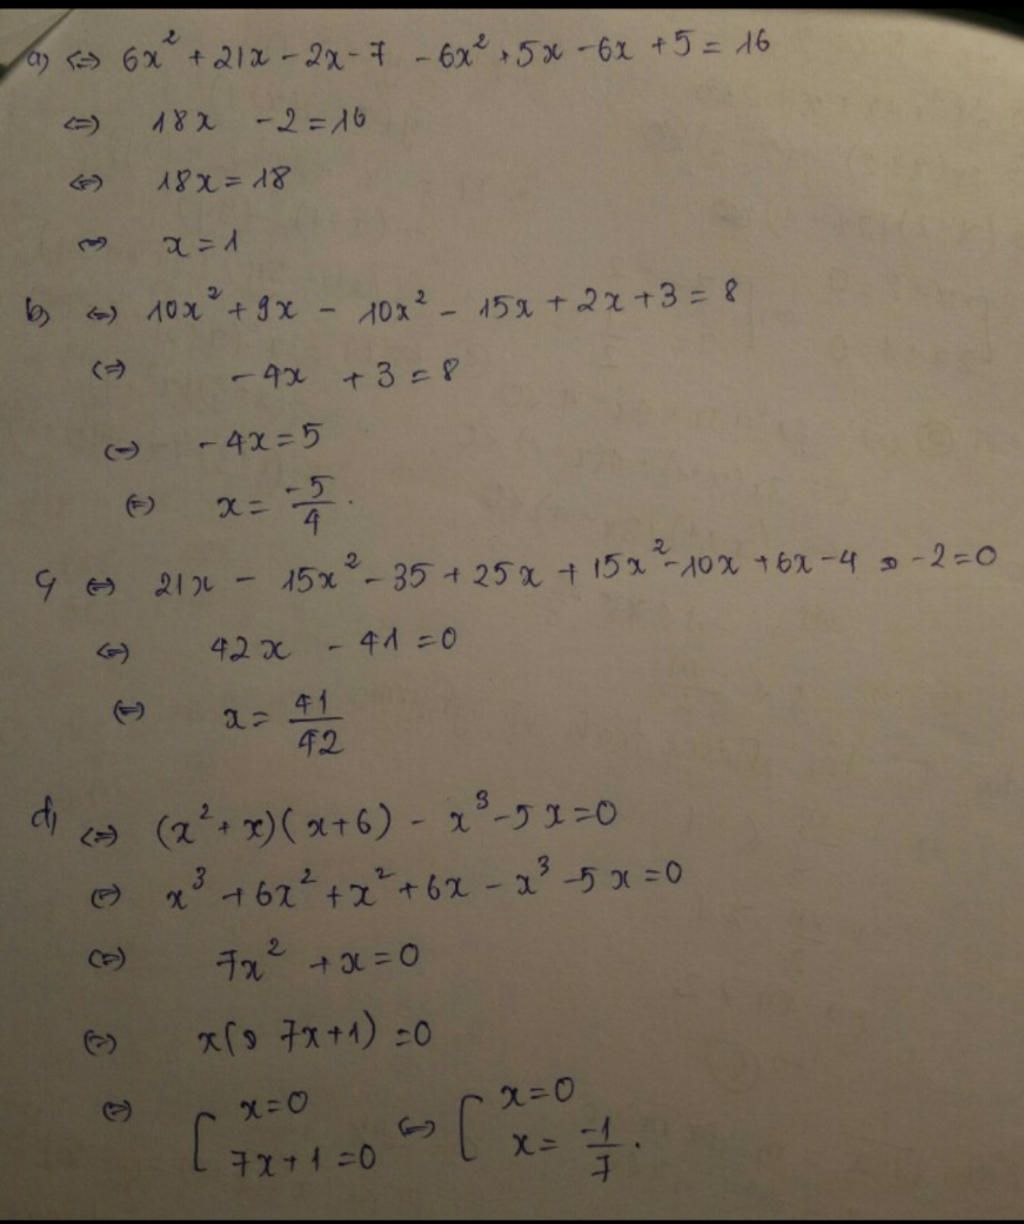 a) ⇔ 6x² + 21x - 2x - 7 - 6x² + 5x - 6x + 5 = 16
⇔ 18x - 2 = 16
⇔ 18x = 18
⇔ x = 1
b) ⇔ 10x² + 9x - 10x² - 15x + 2x + 3 = 8
⇔ -4x + 3 = 8
⇔ -4x = 5
⇔ x = -5/4.
c) ⇔ 21x - 15x² - 35 + 25x + 15x² - 10x + 6x - 4 - 2 = 0
⇔ 42x - 41 = 0
⇔ x = 41/42
d) ⇔ (x² + x)(x + 6) - x³ - 5x = 0
⇔ x³ + 6x² + x² + 6x - x³ - 5x = 0
⇔ 7x² + x = 0
⇔ x(7x + 1) = 0
⇔ [ x = 0 ⇔ [ x = 0
7x + 1 = 0 x = -1/7.